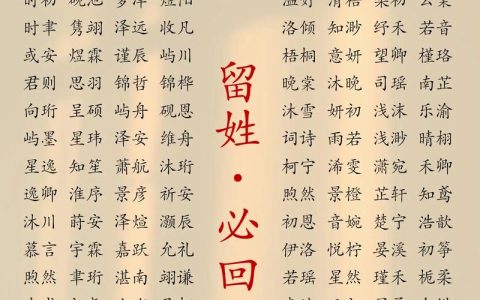 时聿 隽翊 泽远 收凡
或安 煜霖 谨辰 屿川
君则 思羽 锦哲 锦桦
向珩 呈硕 屿舟 砚恩
屿墨 星玮 泽安 维舟
星逸 知笙 萧航 沐珩
逸卿 淮序 景彦 祈安
沐川 莳安 泽煊 灏辰
慕言 宇霖 嘉跃 允礼
煦然 聿珩 湛南 翊谦
留姓·必回
洛倾 清妍 纾禾 若音
梧桐 知意 望卿 槿珞
晚棠 沐晚 司瑶 南芷
沐雪 妍初 浅沫 乐渝
词诗 雨若 浅渺 晴栩
柯宁 浠雯 潇宛 禾卿
煦然 景橙 芷轩 知鸢
初恩 音婉 楚宁 浩歆
伊洛 悦柠 晏溪 初筝
若瑶 星然 瑾禾 栀柔